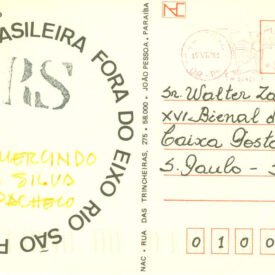 BRASILEIRA FORA DO EIXO RIO SÃO P
RS
SILVA
PACHECO
NAC - RUA DAS TRINCHEIRAS, 275 - 58.000 - JOÃO PESSOA, PARAÍBA
NAC
Sr. Walter Za
XVI Bienal d
Caixa Posta
S. Paulo - S
0 1 0 0